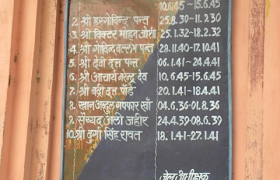 10.6.45 - 15.6.45
2. श्री हरगोविन्द पन्त 25.8.30 - 11.2.30
3. श्री विक्टर मोहन जोशी 25.1.32 - 18.2.32
4. श्री गोविन्द बल्लभ पन्त 28.11.40 - 17.10.41
5. श्री देवी दत्त पन्त 06.1.41 - 24.4.41
6. श्री आचार्य नरेन्द्र देव 10.6.45 - 15.6.45
7. श्री बद्री दत्त पांडे 20.2.41 - 28.3.41
8. खान अब्दुल गफ्फार खाँ 04.6.36 - 01.8.36
9. सैय्यद अली जहीर 24.4.39 - 08.6.39
10. श्री दुर्गा सिंह रावत 18.1.41 - 27.1.41
जेल अधीक्षक